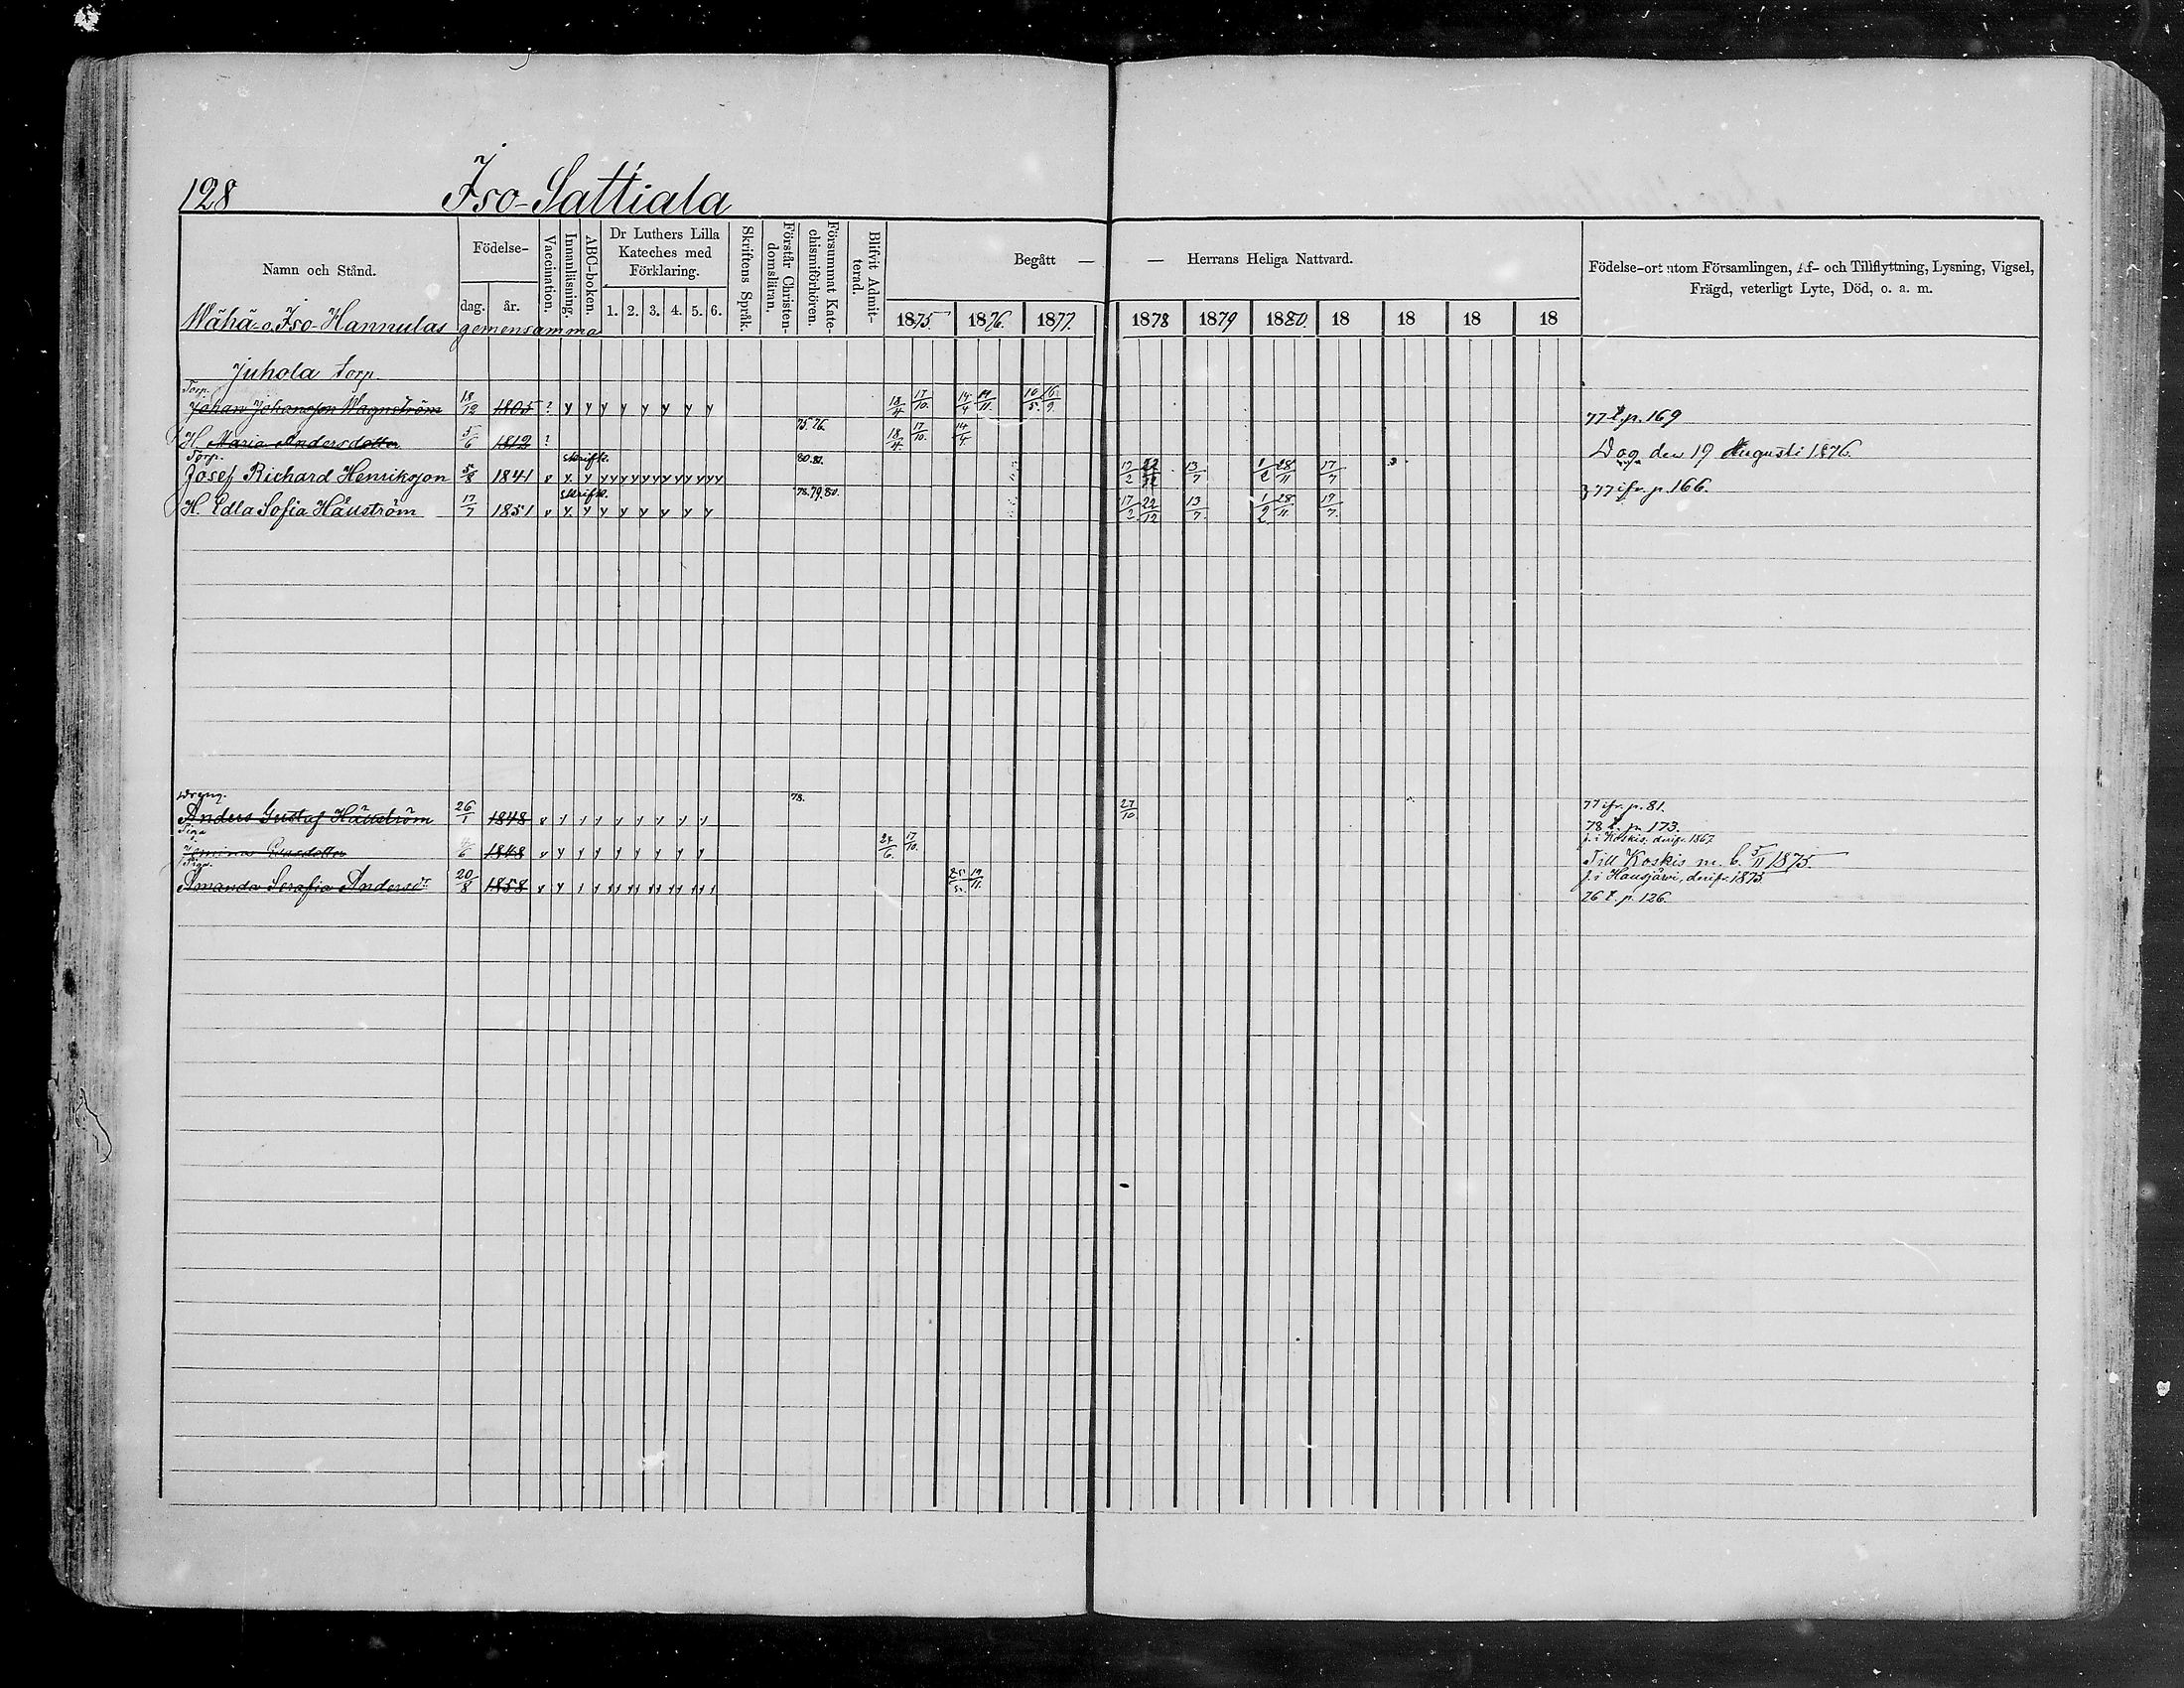 128 Iso-Sattiala
Namn och Stånd.
Födelse-
dag. år.
Vaccination.
Innanläsning.
ABC-boken.
Dr Luthers Lilla Kateches med Förklaring.
1. 2. 3. 4. 5. 6.
Skriftens Språk.
Förstår Christen-domsläran.
Försummat Kate-chismiförhören.
Blifvit Admit-terad.
Begått — — Herrans Heliga Nattvard.
1875 1876. 1877. 1878 1879 1880. 18 18 18 18
Födelse-ort utom Församlingen, Af- och Tillflyttning, Lysning, Vigsel,
Frägd, veterligt Lyte, Död, o. a. m.
Wähä- o. Iso-Hannulas gemensamma
Juhola torp.
Torp.
Johan Johansson Wagnström 18/12 1805 ? y y y y y y y y 18/4 17/10. 14/4 19/11. 10/5. 16/9. 77 t. p. 169
75. 76.
H. Maria Andersdotter 5/6 1812 ? 18/4. 17/10. 14/4. Dog den 19 Augusti 1876.
Torp. skriftk. 80. 81.
Josef Richard Henriksson 5/8 1841 v y. y yyyyyyyyyyyy 17/2 22/12 13/7 1/2 28/11 17/7
skriftk. 78. 79. 80. 77 ifr. p. 166.
H. Edla Sofia Håuström 17/7 1851 v y. y y y y y y y 17/2. 22/12 13/7. 1/2 28/11 17/7.
Dreng. 78.
Anders Gustaf Håuström 26/1 1848 v y y y y y y y y 27/10. 77 ifr. p. 81.
78 t. p. 173.
Pina f. i Koskis, derifr. 1867
1848 v y y y y y y y y 24/6. 17/10. Till Koskis m. b. 5/11 1875.
Pigan
Amanda Serafia Andersdr 20/8 1858 v y 25/5. 19/11. f. i Hausjärvi, derifr. 1875.
76 t. p. 126.